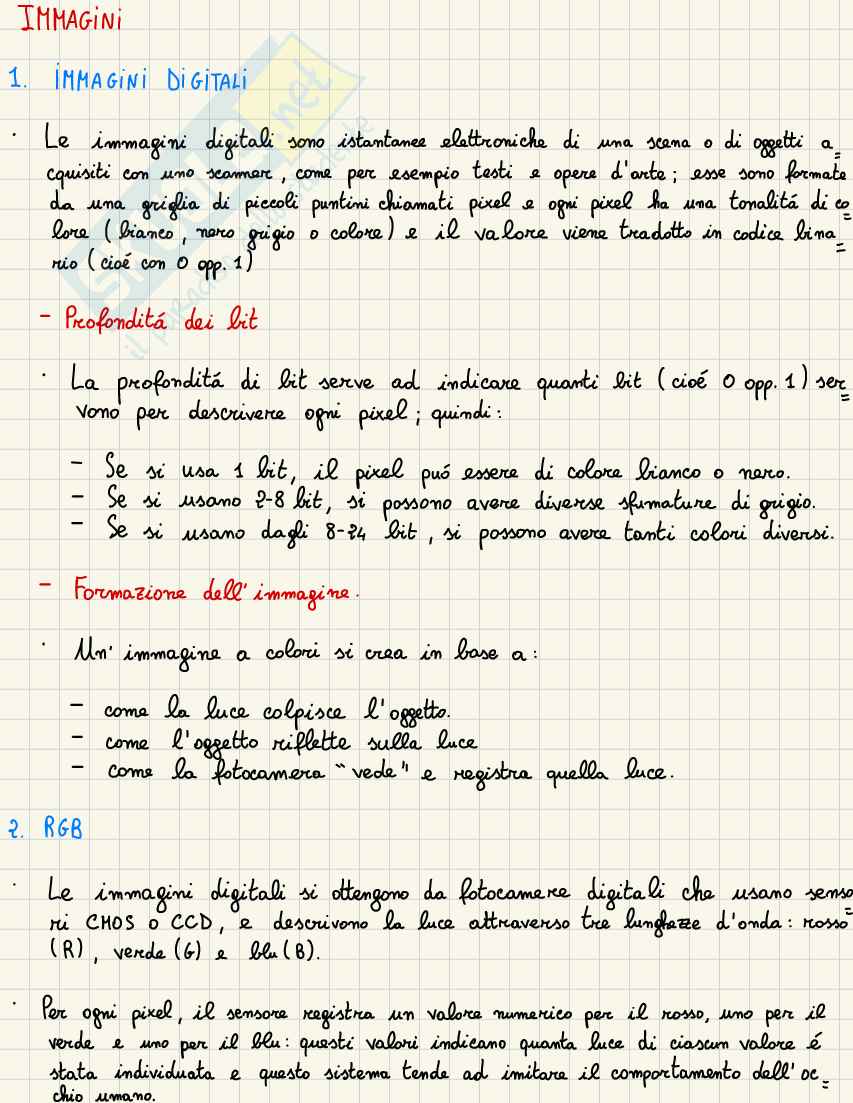 IMMAGINI
1. IMMAGINI DIGITALI
· Le immagini digitali sono istantanee elettroniche di una scena o di oggetti a=
cquisiti con uno scanner, come per esempio testi e opere d'arte; esse sono formate
da una griglia di piccoli puntini chiamati pixel e ogni pixel ha una tonalitá di co=
lore (bianco, nero grigio o colore) e il valore viene tradotto in codice bina=
rio (cioé con 0 opp. 1)
- Profonditá dei bit
· La profonditá di bit serve ad indicare quanti bit (cioé 0 opp. 1) ser=
vono per descrivere ogni pixel; quindi:
- Se si usa 1 bit, il pixel puó essere di colore bianco o nero.
- Se si usano 2-8 bit, si possono avere diverse sfumature di grigio.
- Se si usano dagli 8-24 bit, si possono avere tanti colori diversi.
- Formazione dell'immagine.
· Un'immagine a colori si crea in base a:
- come la luce colpisce l'oggetto.
- come l'oggetto riflette sulla luce
- come la fotocamera "vede" e registra quella luce.
2. RGB
· Le immagini digitali si ottengono da fotocamere digitali che usano senso=
ri CMOS o CCD, e descrivono la luce attraverso tre lunghezze d'onda: rosso
(R), verde (G) e blu (B).
· Per ogni pixel, il sensore registra un valore numerico per il rosso, uno per il
verde e uno per il blu: questi valori indicano quanta luce di ciascun valore é
stata individuata e questo sistema tende ad imitare il comportamento dell'oc=
chio umano.